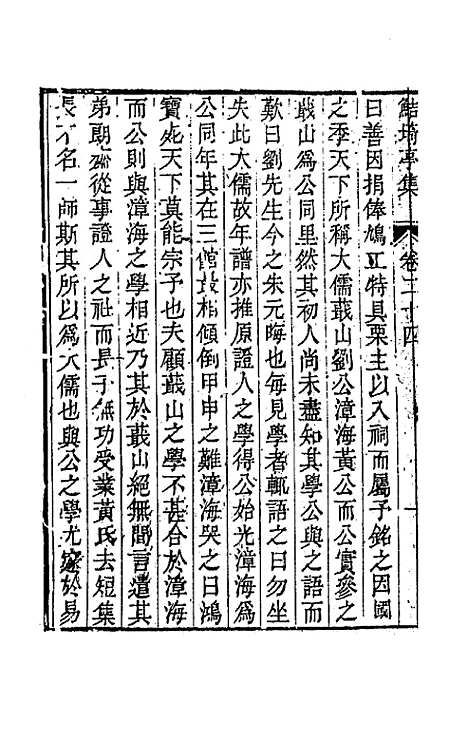 鮚埼亭集　卷二十四
曰善因捐俸鳩工特具栗主以入祠而屬予銘之因國
之季天下所稱大儒蕺山劉公漳海黃公而公實參之
蕺山爲公同里然其初人尚未盡知其學公與之語而
歎曰劉先生今之朱元晦也每見學者輒語之曰勿坐
失此大儒故年譜亦推原證人之學得公始光漳海爲
公同年其在三館最相傾倒甲申之難漳海哭之曰鴻
寶死天下莫能宗予也夫顧蕺山之學不甚合於漳海
而公則與漳海之學相近乃其於蕺山絕無間言遣其
弟朝夕從事證人之社而長子無功受業黃氏去短集
長不名一師斯其所以爲大儒也與公之學尤邃於易